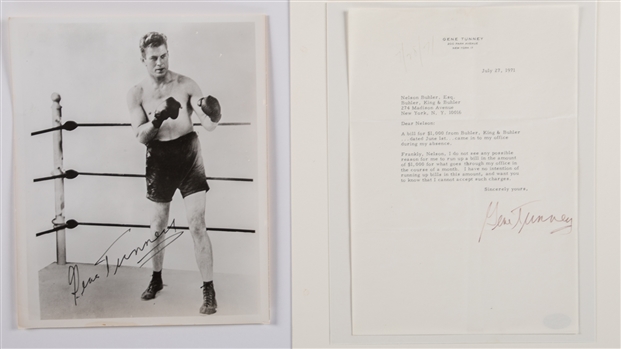 Gene Tunney
GENE TUNNEY
NEW YORK
July 27, 1971
Nelson Buhler, Esq.
Buhler, King & Buhler
274 Madison Avenue
New York, N. Y. 10016
Dear Nelson:
A bill for $1,000 from Buhler, King & Buhler
dated June 1st. came in to my office
during my absence.
Frankly, Nelson, I do not see any possible
reason for me to run up a bill in the amount
of $1,000 for what goes through my office in
the course of a month. I have no intention of
running up bills in this amount, and want you
to know that I cannot accept such charges.
Sincerely yours,
Gene Tunney